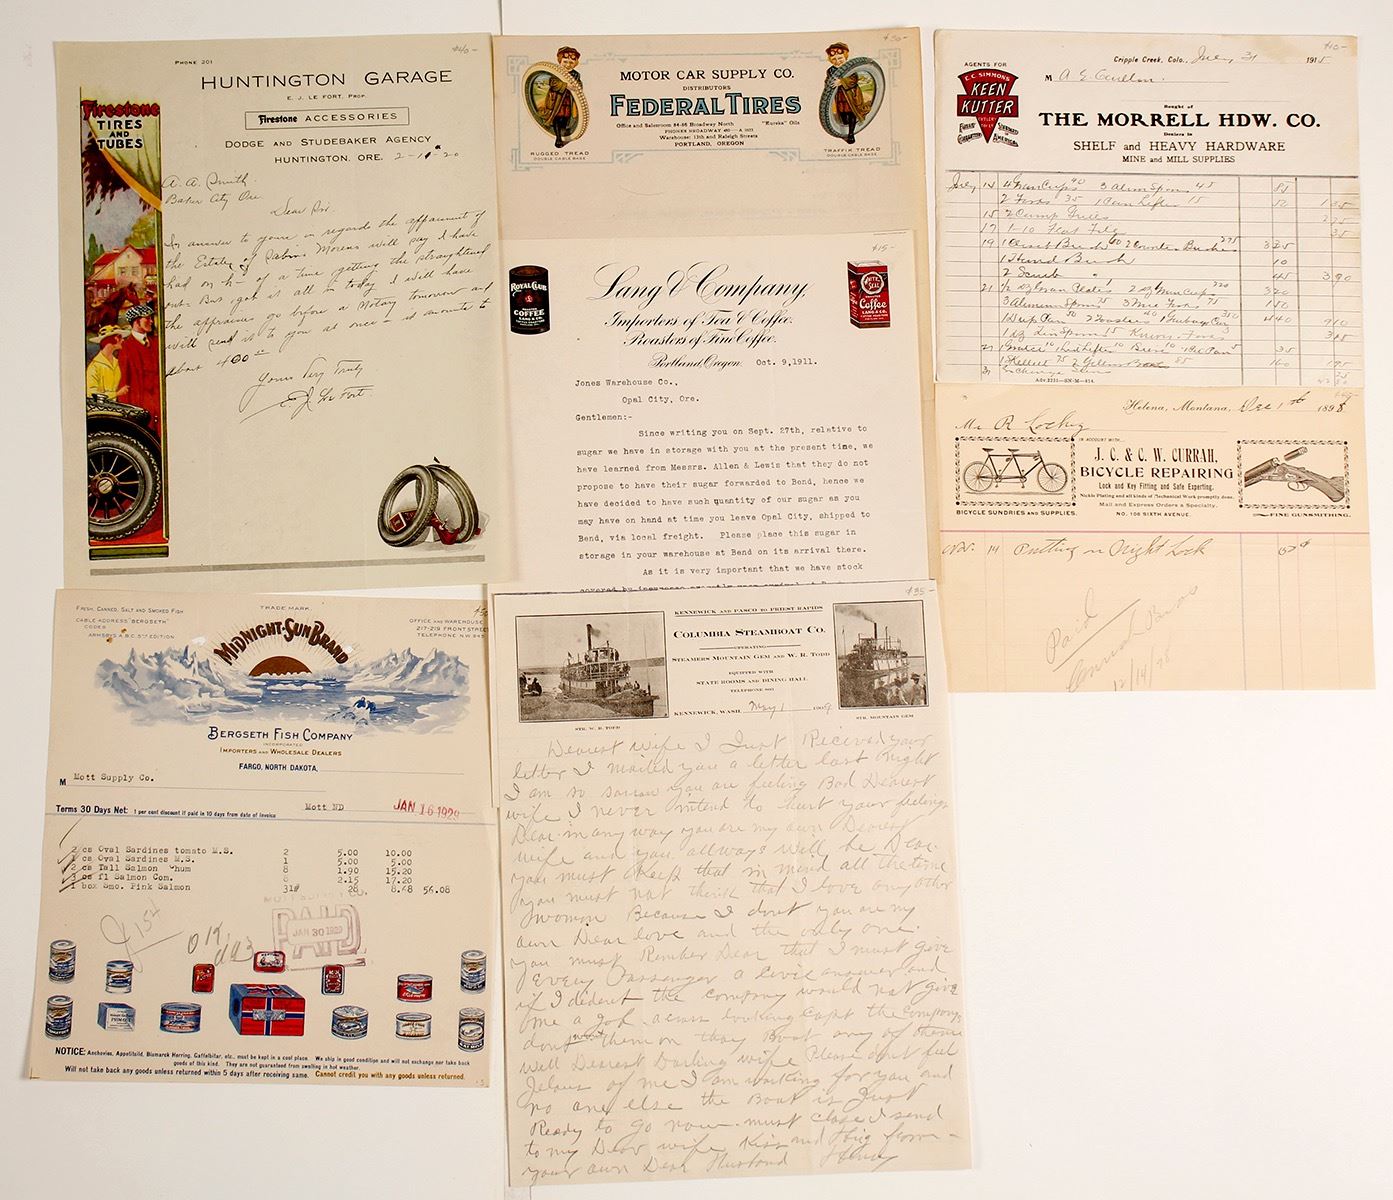 $40-
PHONE 201
HUNTINGTON GARAGE
E. J. LE FORT, PROP.
Firestone ACCESSORIES
DODGE AND STUDEBAKER AGENCY
HUNTINGTON, ORE. 2-10-20
Firestone
TIRES
AND
TUBES
A. A. Smith
Baker City Ore
Dear Sir.
In answer to yours in regards the appraisment of
the Estate of Sabin Morens will say I have
had on h- of a time getting the straightened
over But got it all in today I will have
the appraise go before a Notary tomorrow and
will send it to you at once - it amounts to
about 400 00
Yours Very Truly
E J Le Fort.
$30-
MOTOR CAR SUPPLY CO.
DISTRIBUTORS
FEDERAL TIRES
Office and Salesroom 84-86 Broadway North "Eureka" Oils
Warehouse: 13th and Raleigh Streets
PORTLAND, OREGON
RUGGED TREAD
DOUBLE CABLE BASE
TRAFFIK TREAD
DOUBLE CABLE BASE
$15-
ROYAL CLUB
COFFEE
LANG & CO.
WHITE SEAL
Coffee
LANG & CO.
Lang & Company,
Importers of Tea & Coffee.
Roasters of Fine Coffee.
Portland, Oregon, Oct. 9,1911.
Jones Warehouse Co.,
Opal City, Ore.
Gentlemen:-
Since writing you on Sept. 27th, relative to
sugar we have in storage with you at the present time, we
have learned from Messrs. Allen & Lewis that they do not
propose to have their sugar forwarded to Bend, hence we
have decided to have such quantity of our sugar as you
may have on hand at time you leave Opal City, shipped to
Bend, via local freight. Please place this sugar in
storage in your warehouse at Bend on its arrival there.
As it is very important that we have stock
$10-
Cripple Creek, Colo., July 31 1915
M A. G. Cudlm.
AGENTS FOR
E. C. SIMMONS
KEEN
KUTTER
Bought of
THE MORRELL HDW. CO.
Dealers in
SHELF and HEAVY HARDWARE
MINE and MILL SUPPLIES
July 14 4 Gran Cups 40 3 Alum Spons 45 85
2 Forks 35 1 Can Lifter 15 50 1 35
15 2 Camp Grills
17 1-10 Flat File 35
19 1 Closet Brush 60 2 Counter Brushes 275 335
1 Hand Brush 10
2 Scrub " 45 390
21 ½ dz Gran Plates ½ dz Gran Cups 220
3 Alumin Spons 75 3 Mix Forks 75 150
1 Dish Pan 50 2 Toasters 40 1 Garbage Can 350 440 910
35
1 Skillet 75 160 195
31 Exchange
Adv.2231-SN-M-414.
Helena, Montana, Dec 1st 1898
Mr R Lockey
IN ACCOUNT WITH
J. C. & C. W. CURRAH,
BICYCLE REPAIRING
Lock and Key Fitting and Safe Experting.
Nickle Plating and all kinds of Mechanical Work promptly done.
Mail and Express Orders a Specialty.
NO. 108 SIXTH AVENUE.
BICYCLE SUNDRIES AND SUPPLIES.
FINE GUNSMITHING.
Nov. 14 Putting on Night Lock
Paid
Currah Bros
12/14/98
FRESH, CANNED, SALT AND SMOKED FISH
CABLE ADDRESS "BERGSETH"
CODES
ARMSBYS A.B.C. 5TH EDITION
TRADE MARK.
MIDNIGHT-SUN BRAND
OFFICE AND WAREHOUSE
217-219 FRONT STREET
TELEPHONE N.W. 945
BERGSETH FISH COMPANY
INCORPORATED
IMPORTERS AND WHOLESALE DEALERS
FARGO, NORTH DAKOTA,
M Mott Supply Co.
Terms 30 Days Net: 1 per cent discount if paid in 10 days from date of invoice
Mott ND JAN 16 1929
2 cs Oval Sardines tomato M.S. 2 5.00 10.00
1 cs Oval Sardines M.S. 1 5.00 5.00
2 cs Tall Salmon Chum 8 1.90 15.20
3 cs fl Salmon Com. 8 2.15 17.20
1 box Smo. Pink Salmon 31# 28 8.68 56.08
PAID
JAN 30 1929
OK
NOTICE: Anchovies, Appetitsild, Bismarck Herring, Gaffelbitar, etc., must be kept in a cool place. We ship in good condition and will not exchange nor take back
goods of this kind. They are not guaranteed from swelling in hot weather.
Will not take back any goods unless returned within 5 days after receiving same. Cannot credit you with any goods unless returned.
$35-
KENNEWICK AND PASCO TO PRIEST RAPIDS
COLUMBIA STEAMBOAT CO.
OPERATING
STEAMERS MOUNTAIN GEM AND W. R. TODD
EQUIPPED WITH
STATE ROOMS AND DINING HALL
KENNEWICK, WASH. May 1 1909
STR. W. R. TODD
STR. MOUNTAIN GEM
Dearest wife I Just Received your
letter I mailed you a letter last night
I am so sorrow you are feeling Bad Dearest
wife I never intend to hurt your feelings
Dear in any way you are my own Dearest
wife and you allways will be Dear
you must Keep that in mind all the time
you must not think that I love any other
woman Because I dont you are my
own Dear love and the only one.
you must Rember Dear that I must give
Every Passanger a Sevil answer and
if I dident the company would not give
me a Job. across looking capt the company
dont want them on thay Boat any of them
well Dearest Darling wife Please dont feel
Jelous of me I am working for you and
no one else the Boat is Just
Ready to go now. must close I send
to my Dear wife Kiss and Hug from -
your own Dear Husband Henry